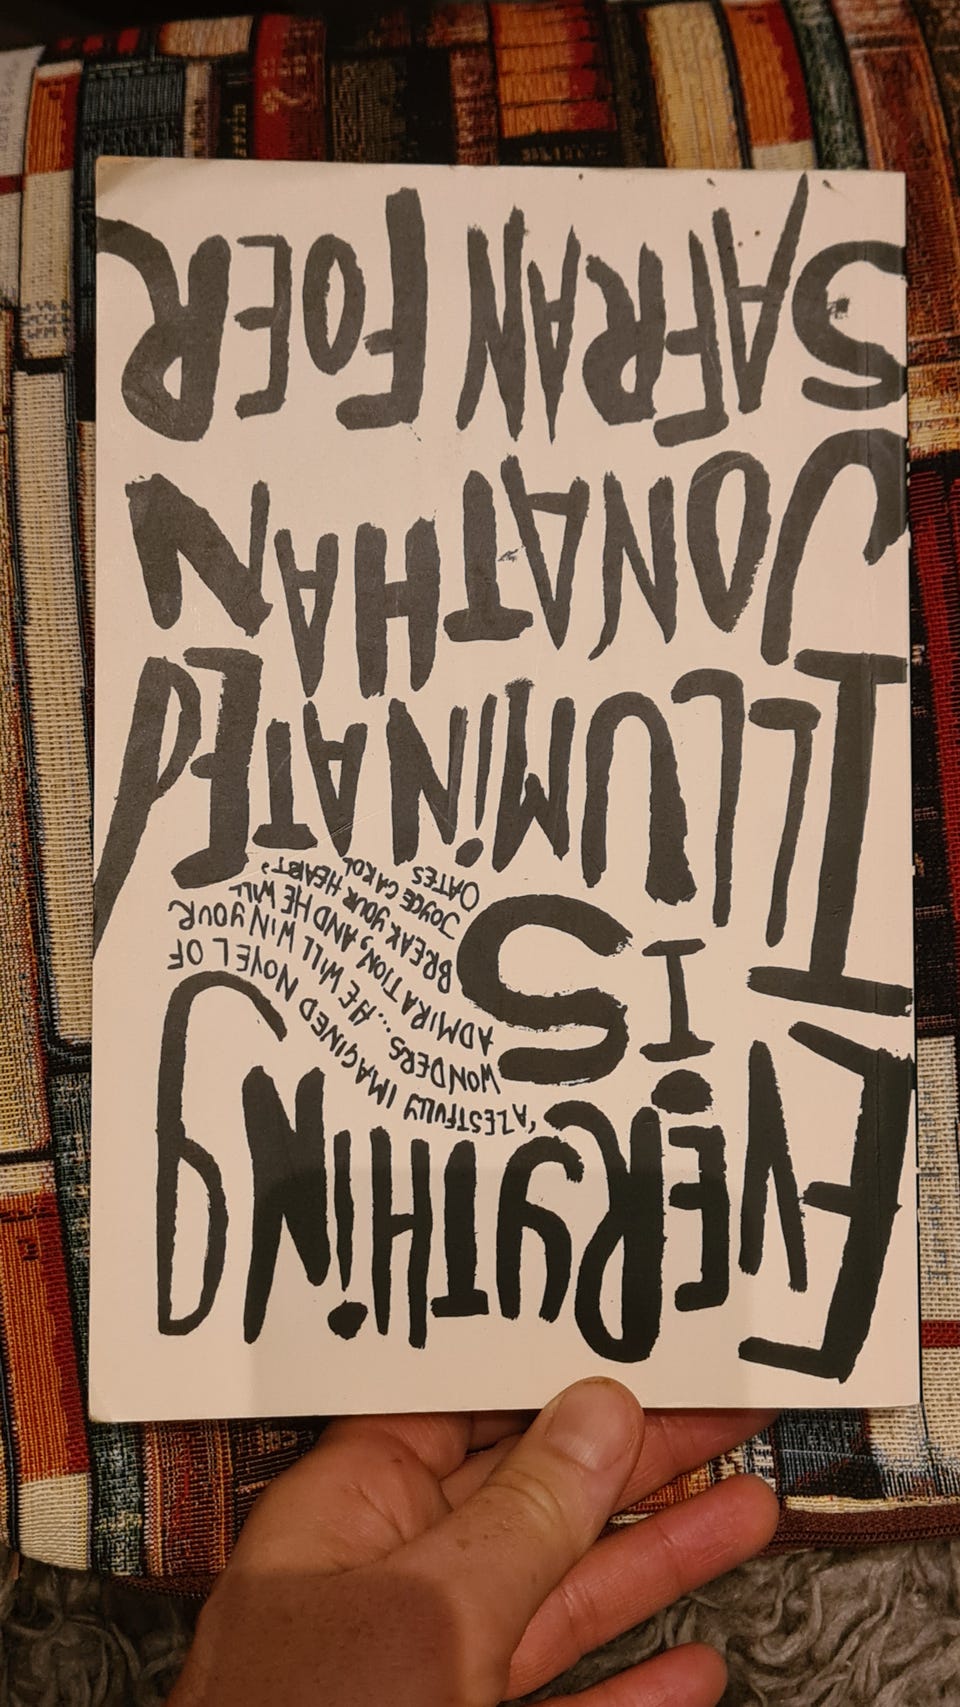 EVERYTHING
IS
'A ZESTFULLY IMAGINED NOVEL OF
WONDERS...HE WILL WIN YOUR
ADMIRATION, AND HE WILL
BREAK YOUR HEART'
JOYCE CAROL
OATES
ILLUMINATED
JONATHAN
SAFRAN FOER